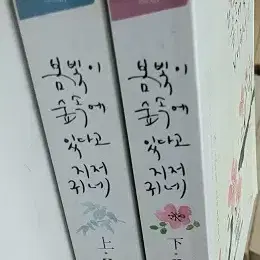 봄빛이
숲속에
있다고
지저
귀네
上
봄빛이
숲속에
있다고
지저
귀네
下